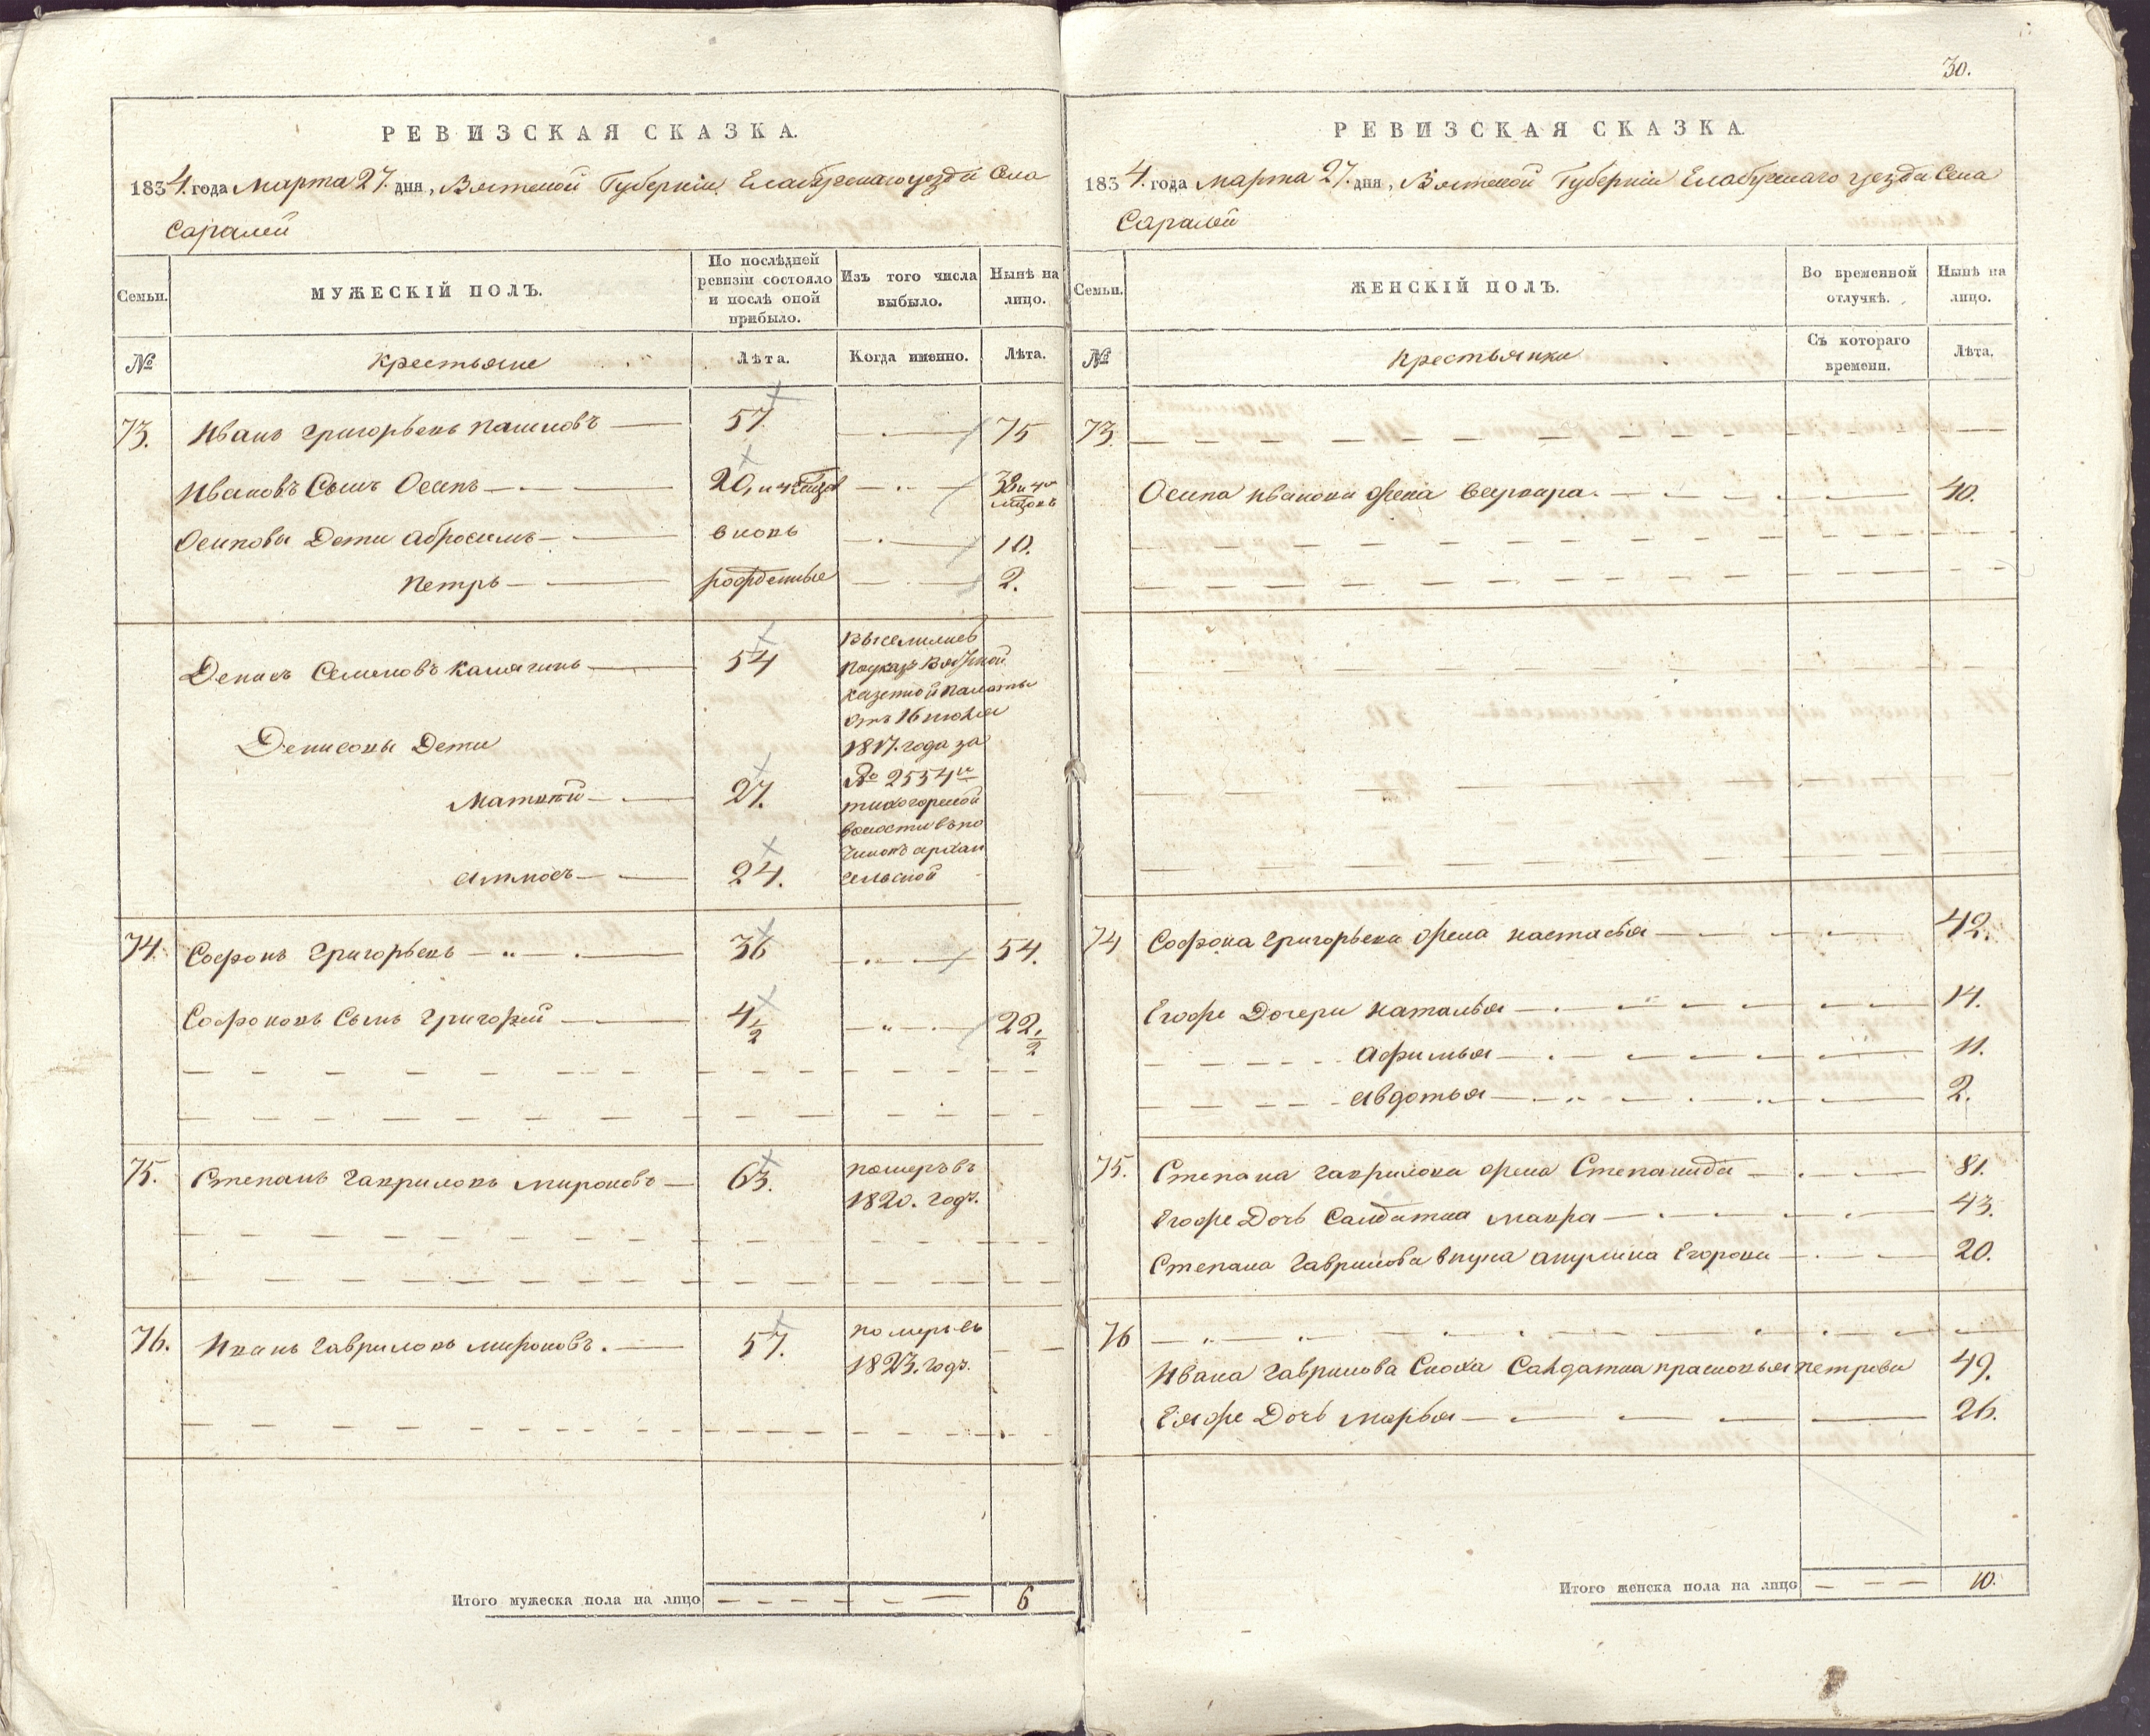 РЕВИЗСКАЯ СКАЗКА.
1834. года Марта 27. дня, Вятской Губерніи Елабужскаго уезда Села
Саралей
Семьи.
МУЖЕСКІЙ ПОЛЪ.
По послѣдней
ревизіи состояло
и послѣ оной
прибыло.
Изъ того числа
выбыло.
Нынѣ на
лицо.
№
Крестьяне
Лѣта.
Когда именно.
Лѣта.
73. Иванъ Григорьевъ Пашковъ 57 75
Ивановъ Сынъ Осипъ 20, и 4 38 и 4
Осиповы Дети Абросимъ вновь 10.
Петръ рожденные 2.
Денисъ Семеновъ 54
Выселились
по указу Вятской
казенной палаты
отъ 16 июля
1817. года за
№ 2554м
тихогорской
волости въ по
чинокъ архан
гельской
Денисовы Дети
Матвей 27.
24.
74. Софронъ Григорьевъ 36 54.
Софроновъ Сынъ Григорей 4 1/2 22. 1/2
75. Степанъ Гавриловъ Мироновъ 63. померъ въ
1820. годе.
76. Иванъ Гавриловъ Мироновъ. 57. померъ въ
1823. годе.
Итого мужеска пола на лицо 6
30.
РЕВИЗСКАЯ СКАЗКА
1834. года Марта 27. дня, Вятской Губерніи Елабужскаго уезда Села
Саралей
Семьи.
ЖЕНСКІЙ ПОЛЪ.
Во временной
отлучкѣ.
Нынѣ на
лицо.
№
Крестьянки
Съ котораго
времени.
Лѣта.
73.
Осипа Иванова жена Варвара. 40.
74 Софрона Григорьева жена Настасья 42.
Егоже Дочери Наталья 14.
Афимья 11.
Авдотья 2.
75. Степана Гаврилова жена Степанида 81.
Егоже Дочь Салдатка Мавра 43.
Степана Гаврилова внука Акулина Егорова 20.
76
Ивана Гаврилова Сноха Салдатка Прасковья Петрова 49.
Еяже Дочь Марья 26.
Итого женска пола на лицо 10.